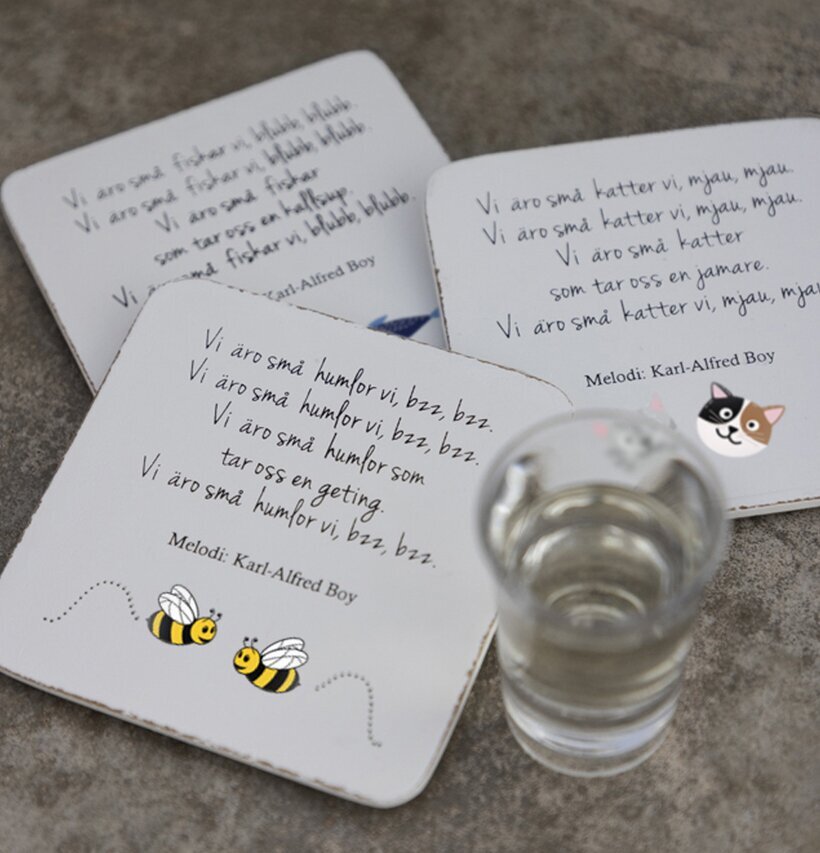 Vi äro små fiskar vi, blubb, blubb.
Vi äro små fiskar vi, blubb, blubb.
Vi äro små fiskar
som tar oss en kallsup.
Vi äro små fiskar vi, blubb, blubb.
Karl-Alfred Boy
Vi äro små katter vi, mjau, mjau.
Vi äro små katter vi, mjau, mjau.
Vi äro små katter
som tar oss en jamare.
Vi äro små katter vi, mjau, mjau
Melodi: Karl-Alfred Boy
Vi äro små humlor vi, bzz, bzz.
Vi äro små humlor vi, bzz, bzz.
Vi äro små humlor som
tar oss en geting.
Vi äro små humlor vi, bzz, bzz.
Melodi: Karl-Alfred Boy